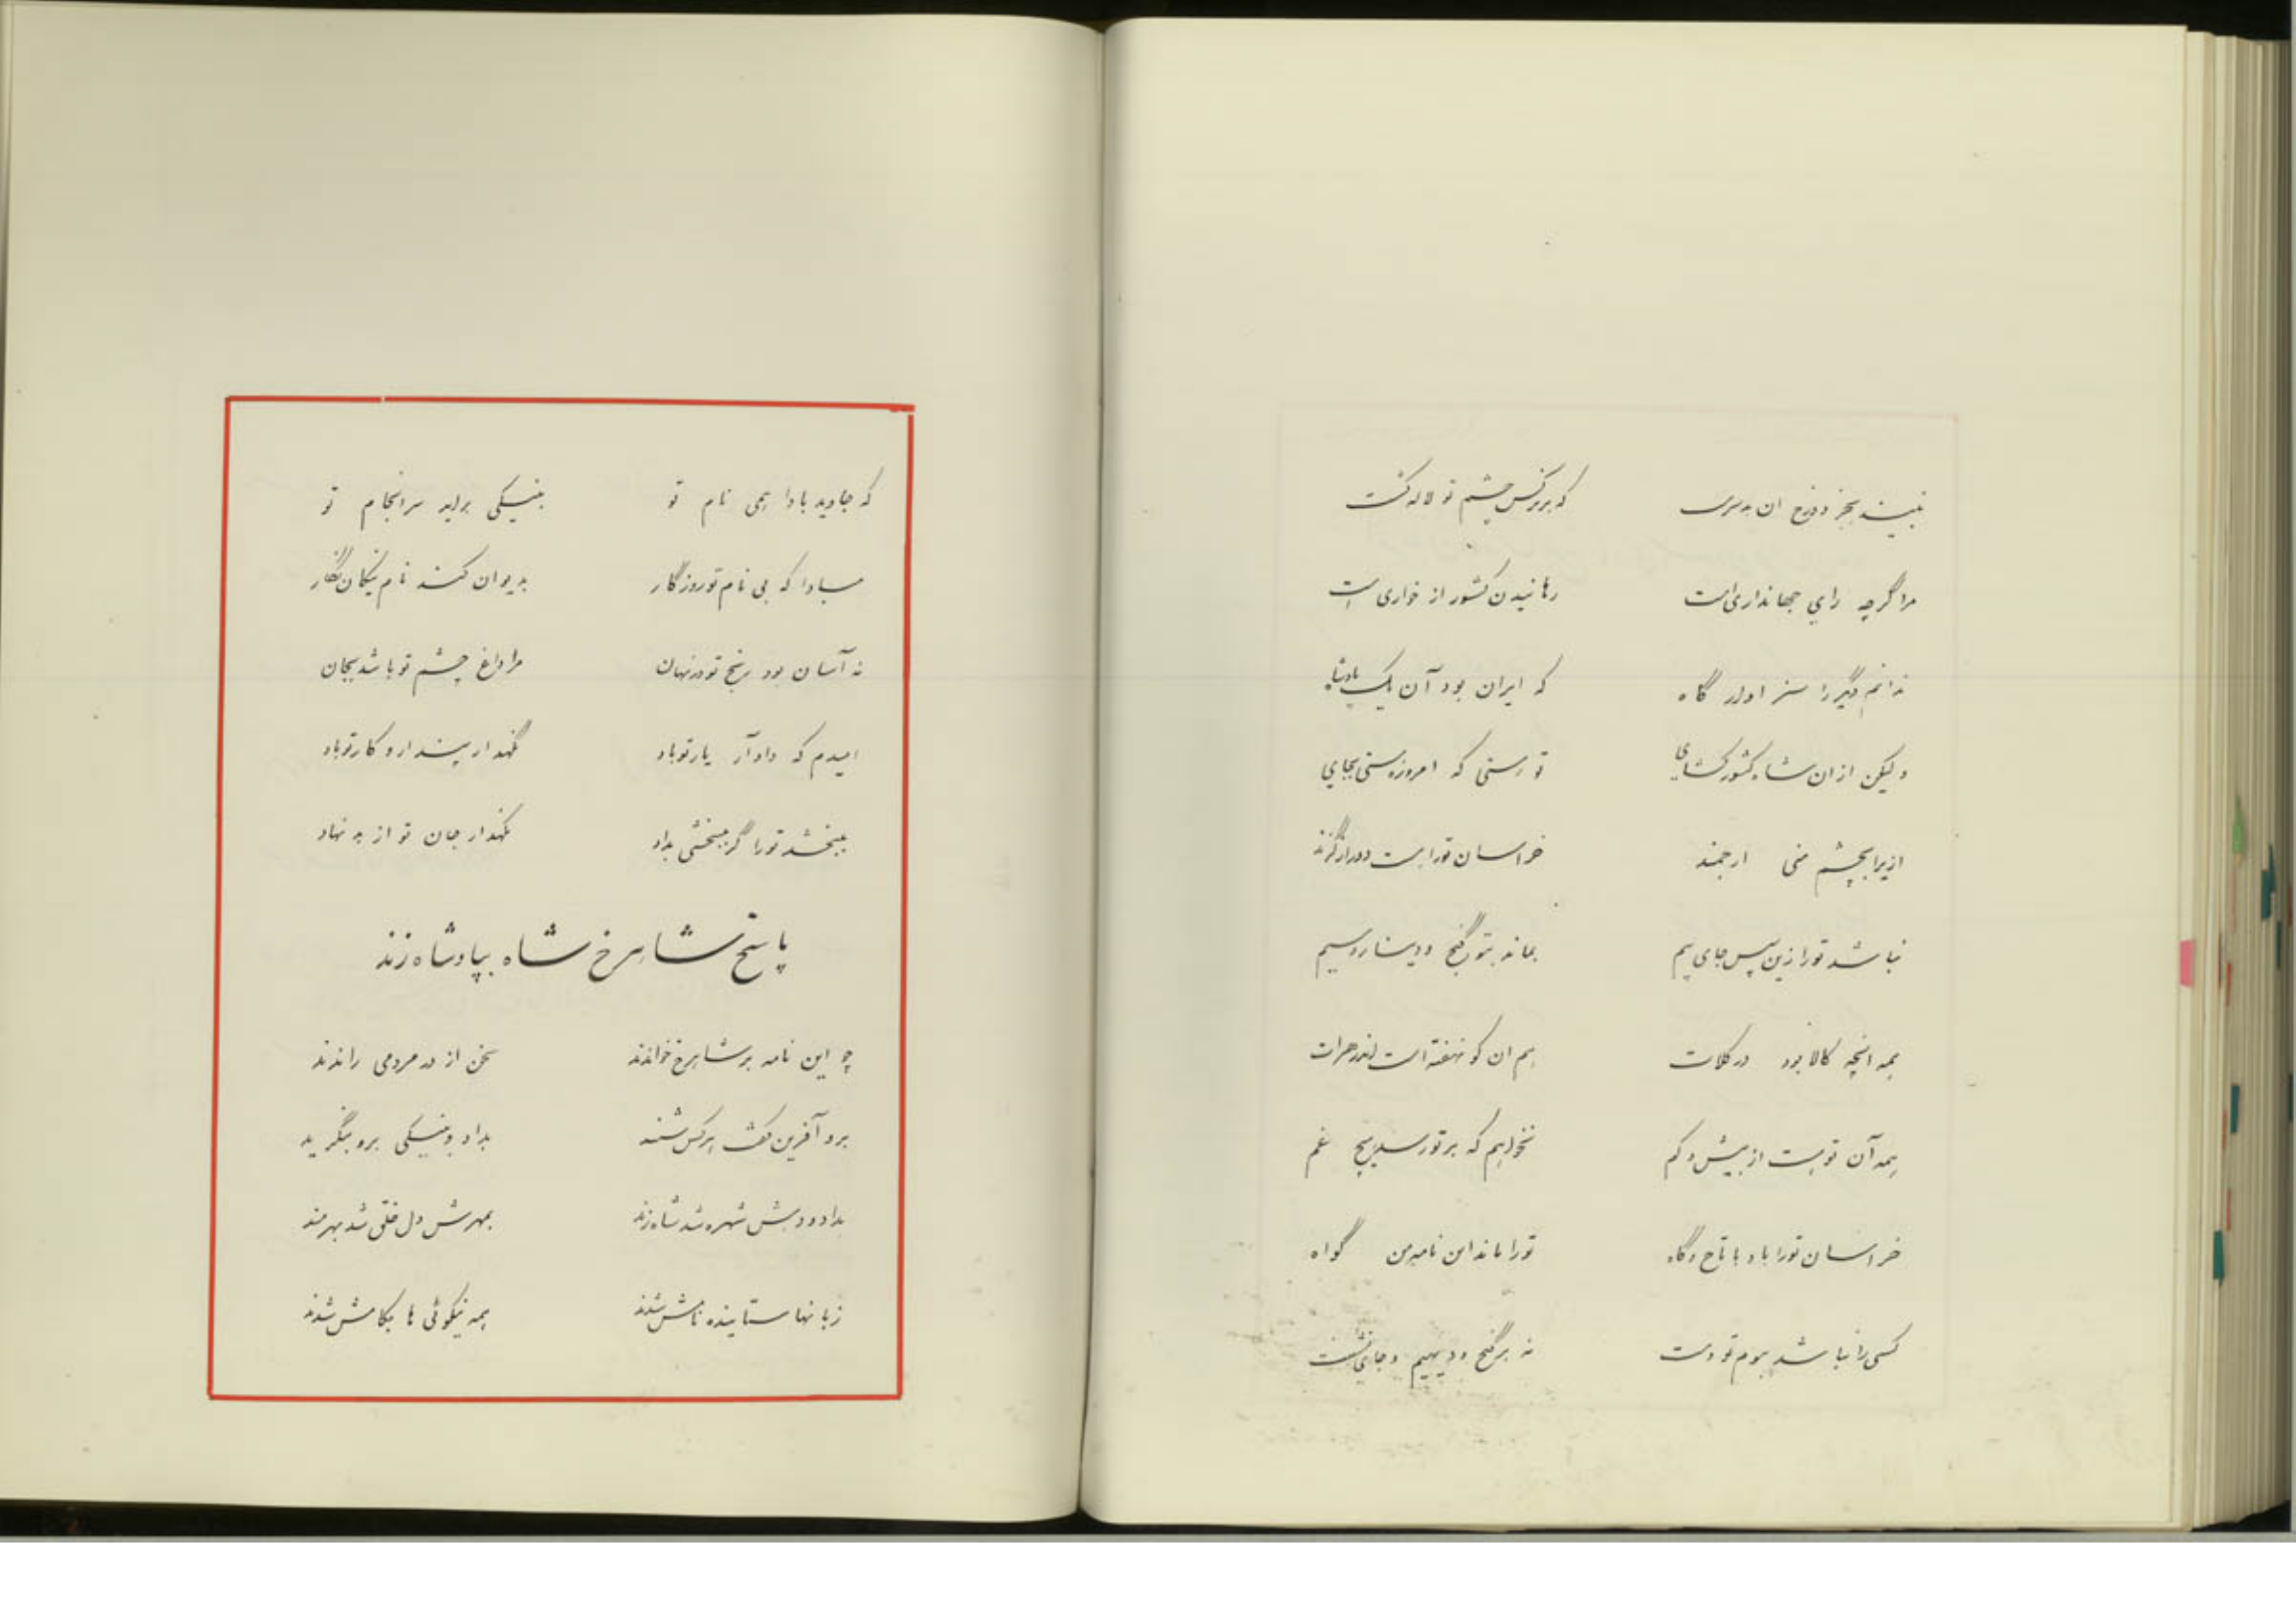 نبیند بجز دوزخ ان بدسرشت که بر نرگس چشم تو لاله کشت
مرا گرچه رای جهانداری است رهانیدن کشور از خواری است
ندانم دیگر را سزاوار گاه که ایران بود آن یک پادشاه
ولیکن از ان شاه کشور کشای تو رستی که امروز هستی بجای
ازیرا بچشم منی ارجمند خراسان تورا است دور از گزند
نباشد تورا زین سپس جای بیم بماند بتو گنج و دینار و سیم
همه انچه کالا بود در کلات هم ان کو نهفته است اندر هرات
همه آن توست از بیش و کم نخواهم که بر تو رسد هیچ غم
خراسان تورا باد با تاج و گاه تورا ماند این نامه من گواه
کسی را نباشد ببوم تو دست نه بر گنج و دیهیم و جای نشست
که جاوید بادا همی نام تو بنیکی براید سرانجام تو
مبادا که بی نام تو روزگار بدیوان کند نام نیکان نگار
نه آسان بود رنج تو در نهان مرا داغ چشم تو باشد بجان
امیدم که دادآر یار تو باد نگهدار پندار و کار تو باد
ببخشد تورا گر ببخشی بداد نگهدار جان تو از بد نهاد
پاسخ شاهرخ شاه بپادشاه زند
چو این نامه بر شاهرخ خواندند سخن از در مردمی راندند
برو آفرین گفت هرکس شنید بداد و بنیکی برو بنگرید
بداد و دهش شهره شد شاه زند بمهرش دل خلق شد بهرمند
زبانها ستاینده نامش شدند همه نیکوئی ها بکامش شدند